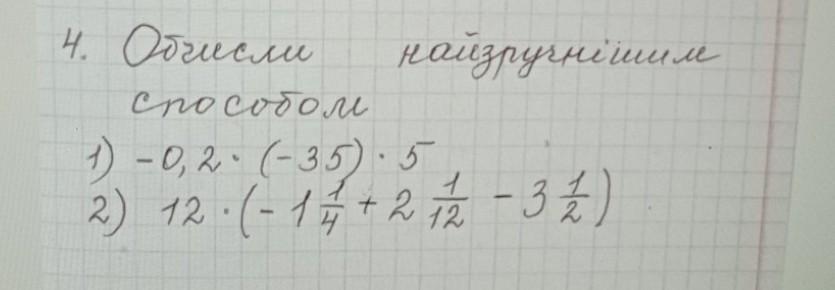 4. Обчисли найзручнішим
способом
1) -0,2 · (-35) · 5
2) 12 · (-1 1/4 + 2 1/12 - 3 1/2)